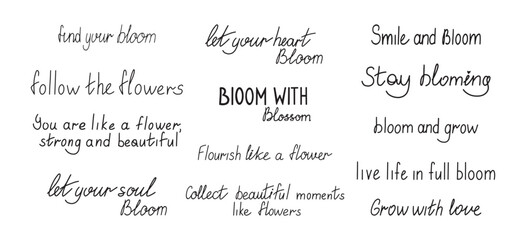 find your bloom
follow the flowers
You are like a flower,
strong and beautiful
let your soul
Bloom
let your heart
Bloom
BlOOM WITH
Blossom
Flourish like a flower
Collect beautiful moments
like flowers
Smile and Bloom
Stay bloming
bloom and grow
live life in full bloom
Grow with love